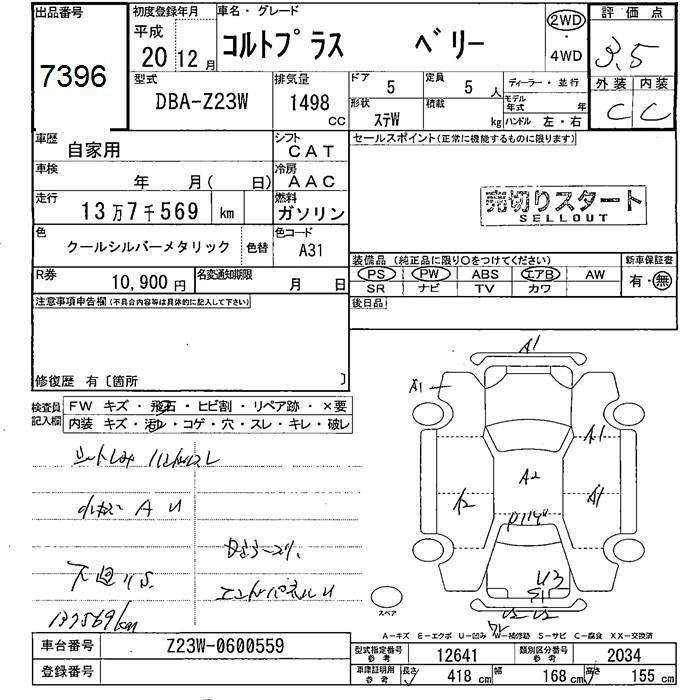 出品番号 初度登録年月 車名・グレード 2WD 評価点
7396 平成 20 12月 コルトプラス ベリー 4WD 3.5
型式 排気量 ドア 5 定員 5人 ディーラー・並行 外装 内装
DBA-Z23W 1498 CC 形状 ステW 積載 kg モデル年式 年 ハンドル 左・右 C C
車歴 自家用 シフト CAT セールスポイント(正常に機能するものに限ります)
車検 年 月( 日) 冷房 AAC
走行 13万7千569 km 燃料 ガソリン 売切りスタート
SELLOUT
色 クールシルバーメタリック 色替 色コード A31
装備品(純正品に限り○をつけてください) 新車保証書
R券 10,900円 名変通知期限 月 日 PS PW ABS エアB AW 有・無
SR ナビ TV カワ
注意事項申告欄(不具合内容等は具体的に記入して下さい) 後日品
修復歴 有〔箇所 〕
検査員記入欄 FW キズ・飛石・ヒビ割・リペア跡・×要
内装 キズ・汚れ・コゲ・穴・スレ・キレ・破レ
A1
A1
A1
A2
A2 A1
A U
U3
S1
エンドパネルU
下廻りS
137569km
スペア
W
A-キズ E-エクボ U-凹み W-補修跡 S-サビ C-腐食 XX-交換済
車台番号 Z23W-0600559 型式指定番号 参考 12641 類別区分番号 参考 2034
登録番号 車庫証明用 参考 長さ 418cm 幅 168cm 高さ 155cm